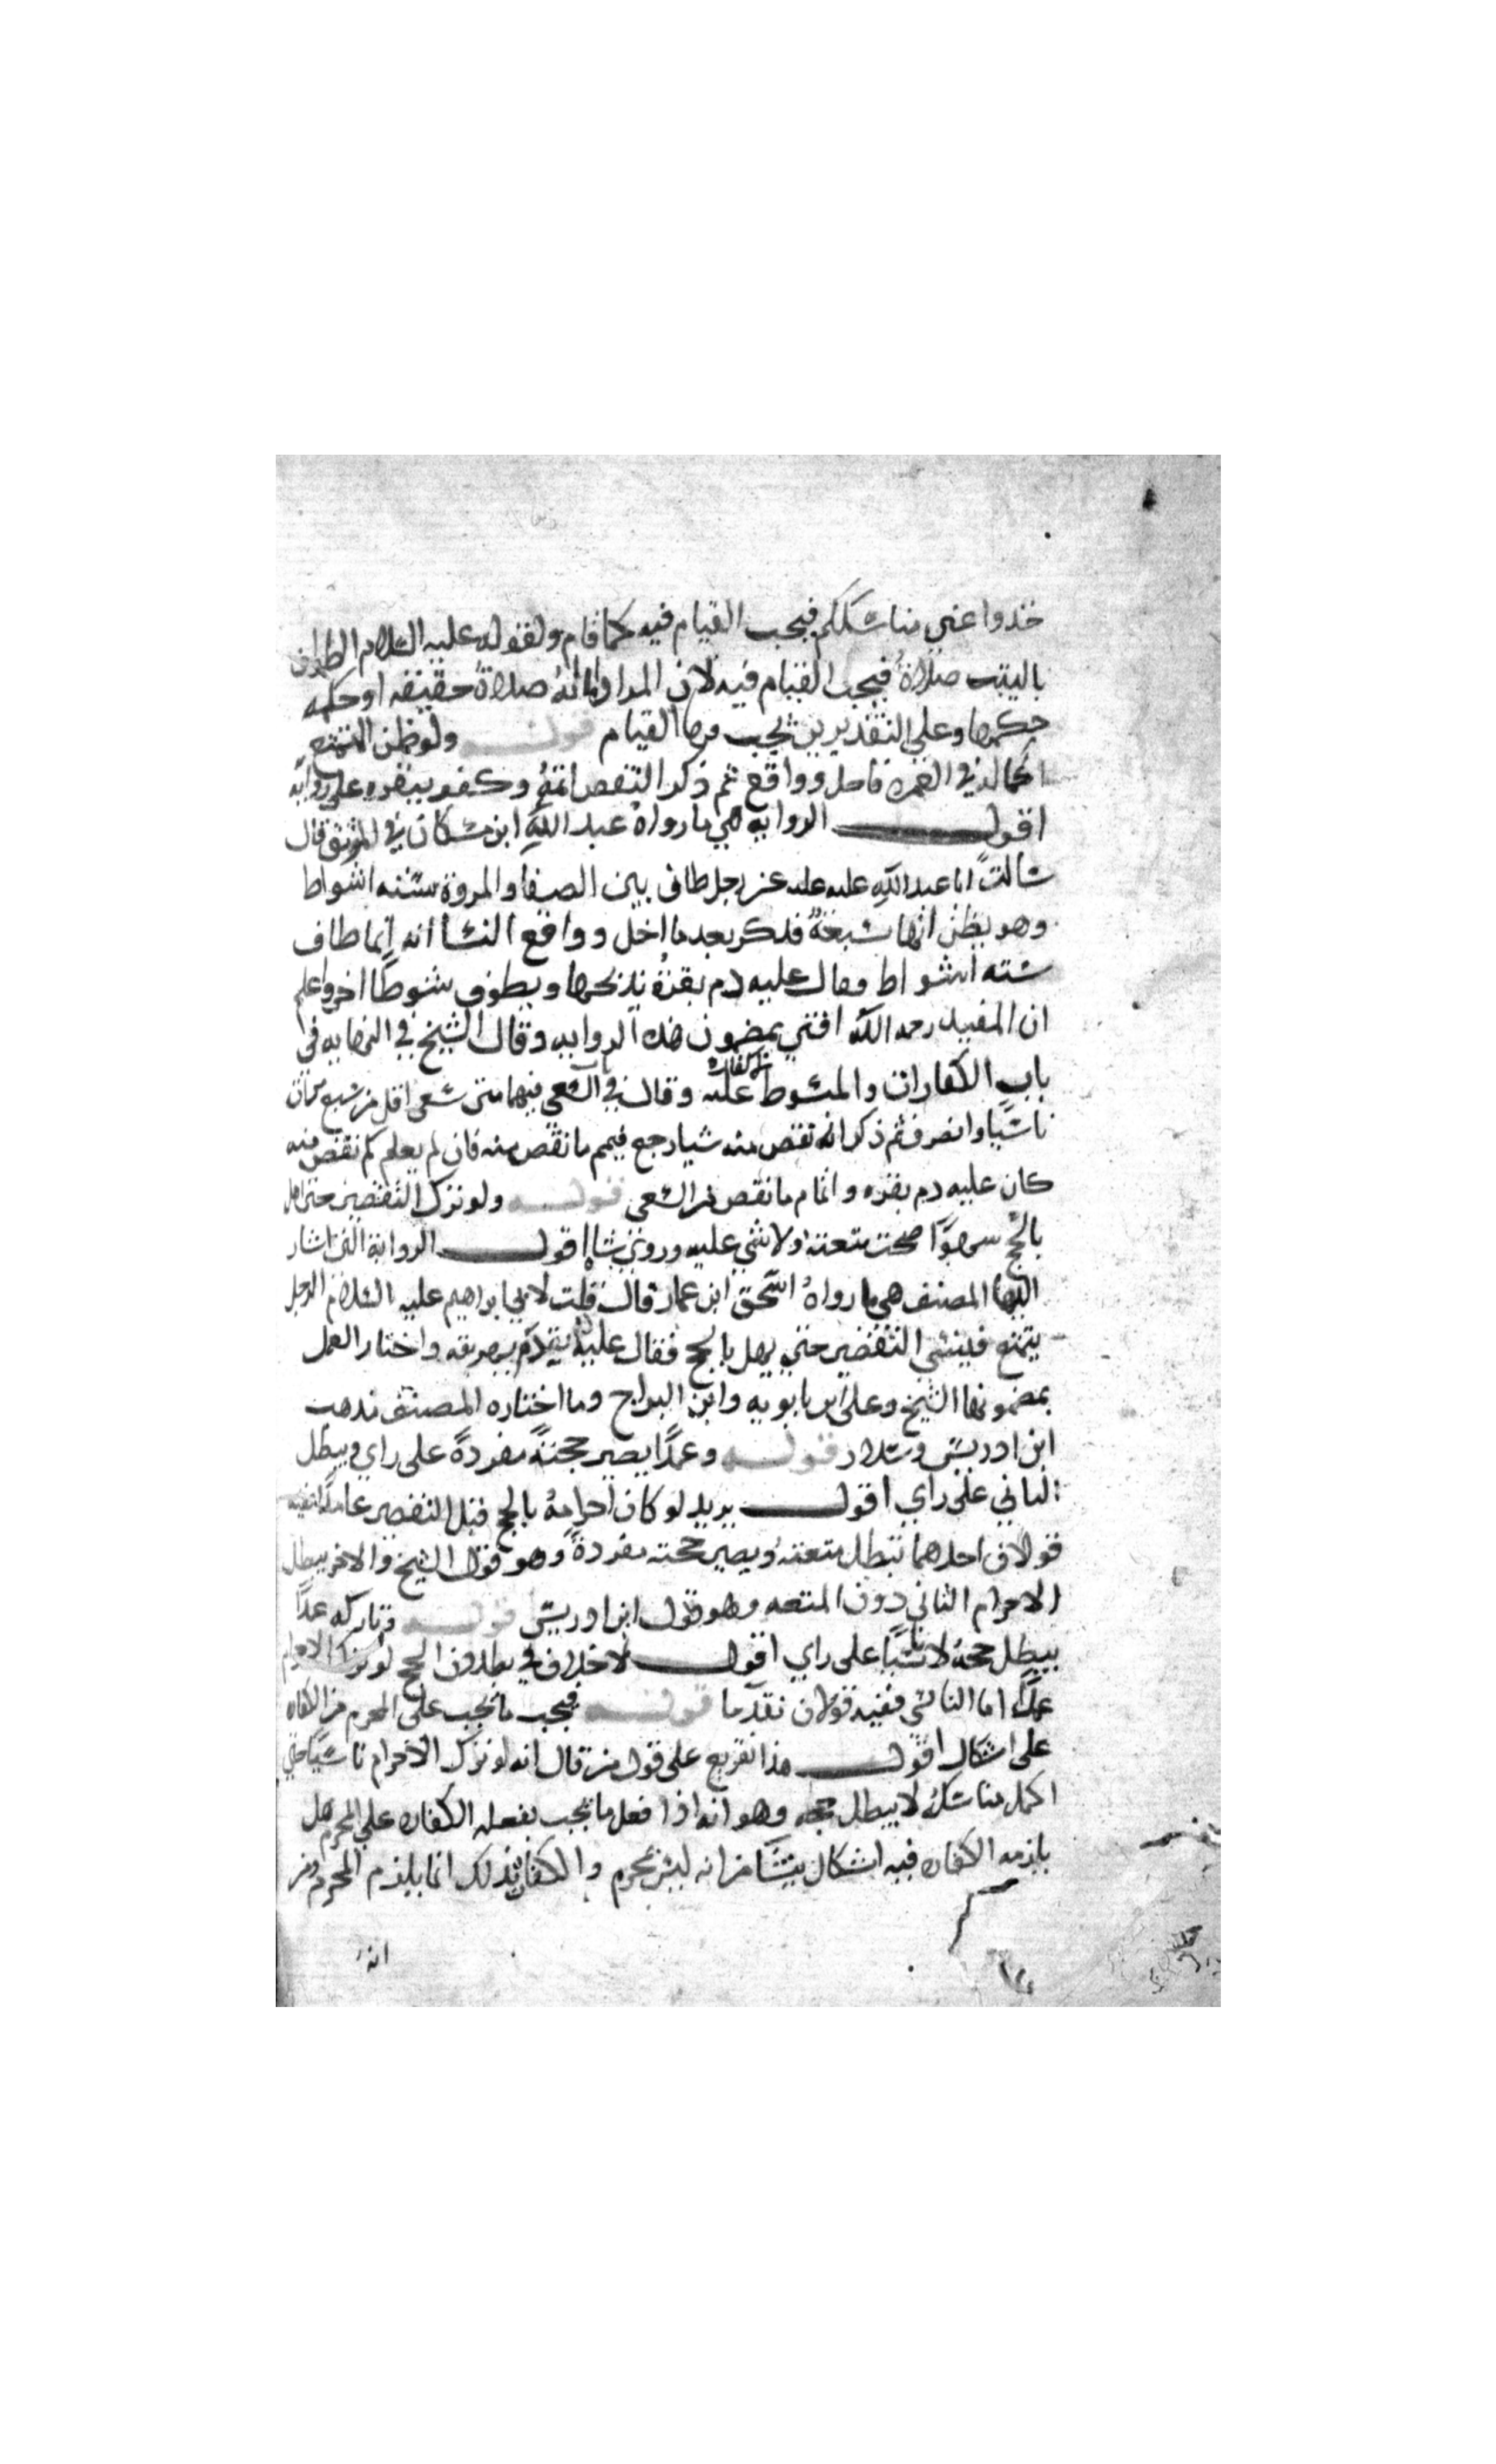 خذوا عني مناسككم فيجب القيام فيه كما قام ولقوله عليه السلام الطواف
بالبيت صلاة فيجب القيام فيه لان المراد اما انه صلاة حقيقه او حكمه
حكمها وعلى التقديرين يجب فيها القيام قوله ولو ظن المتمتع
اكماله في العمره فاحل وواقع ثم ذكر النقص اتمه وكفر ببقره على روايه
اقول الروايه هي ما رواه عبد الله ابن مسكان في الموثق قال
سالت ابا عبد الله عليه عن رجل طاف بين الصفا والمروة ستته اشواط
وهو يظن انها سبعة فذكر بعد ما احل وواقع النسا انه انما طاف
سته اشواط فقال عليه دم بقرة يذبحها ويطوف شوطا اخر واعلم
ان المفيد رحمه الله افتى بمضمون هذه الروايه وقال الشيخ في النهايه في
باب الكفارات والمبسوط عليه الكفاره وقال في باب السعي فيهما متى سعى اقل من سبع مرات
ناسيا وانصرف ثم ذكر انه نقص منه شيا رجع فيمم ما نقص منه فان لم يعلم كم نقص منه
كان عليه دم بقره واتمام ما نقص من السعي قوله ولو ترك التقصير حتى اهل
بالحج سهوا صحت متعته ولا شي عليه وروي شاة اقول الرواية التي اشار
اليها المصنف هي ما رواه اسحق ابن عمار قال قلت لابي ابراهيم عليه السلام الرجل
يتمتع فينسي التقصير حتى يهل بالحج فقال عليه دم يهريقه واختار العمل
بمضمونها الشيخ وعلي ابن بابويه وابن البراج وما اختاره المصنف مذهب
ابن ادريس وسلار قوله وعمدا يصير حجته مفردة على راي ويبطل
الثاني على راي اقول يريد لو كان احرامه بالحج قبل التقصير عامدا ففيه
قولان احدهما تبطل متعته ويصير حجته مفردة وهو قول الشيخ والاخر يبطل
الاحرام الثاني دون المتعه وهو قول ابن ادريس قوله وتاركه عمدا
يبطل حجه لا ناسيا على راي اقول لا خلاف في بطلان الحج لو ترك الاحرام
عمدا اما الناسي ففيه قولان تقدما قوله فيجب ما يجب على المحرم من الكفاره
على اشكال اقول هذا تفريع على قول من قال انه لو ترك الاحرام ناسيا حتى
اكمل مناسكه لا يبطل حجه وهو انه اذا فعل ما تجب بفعله الكفاره على المحرم هل
يلزمه الكفاره فيه اشكال ينشا من انه ليس بمحرم والكفاره بذلك انما يلزم المحرم ومن
انه